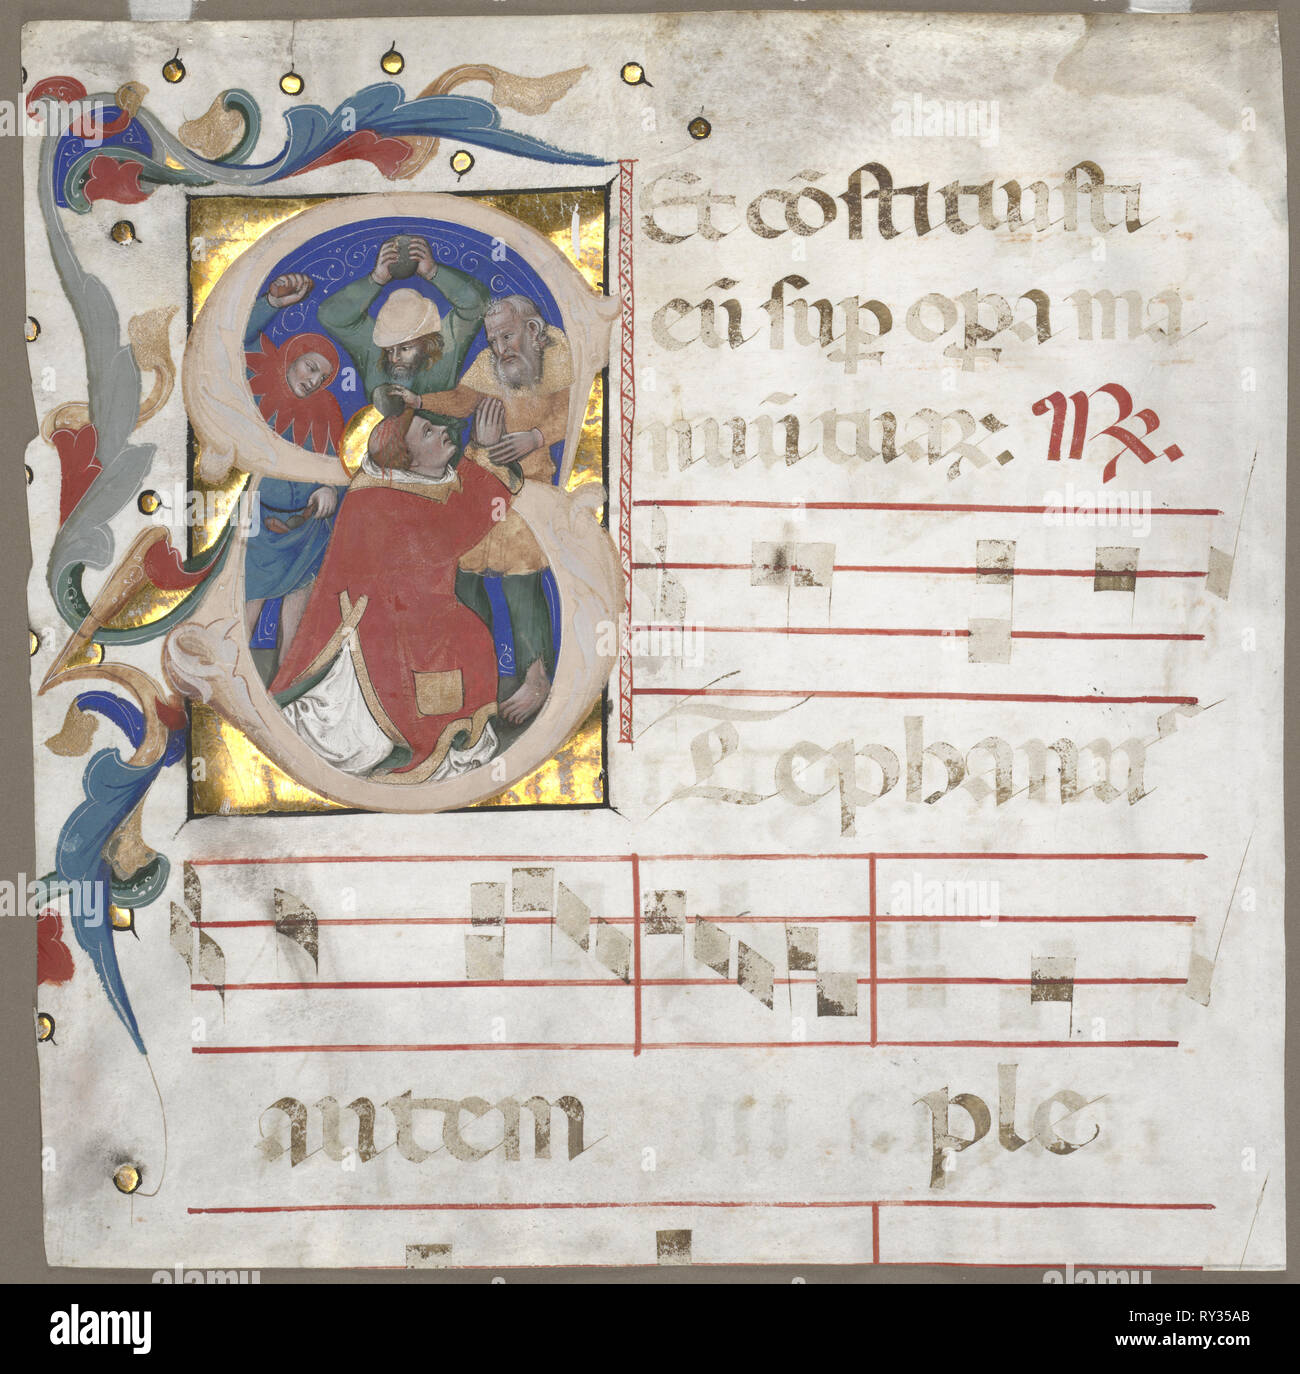 Et cōstituisti
eū sup opa ma
nuū tuaꝝ: ℟.
S Tephanus
autem ple
alamy
Image ID: RY35AB
www.alamy.com